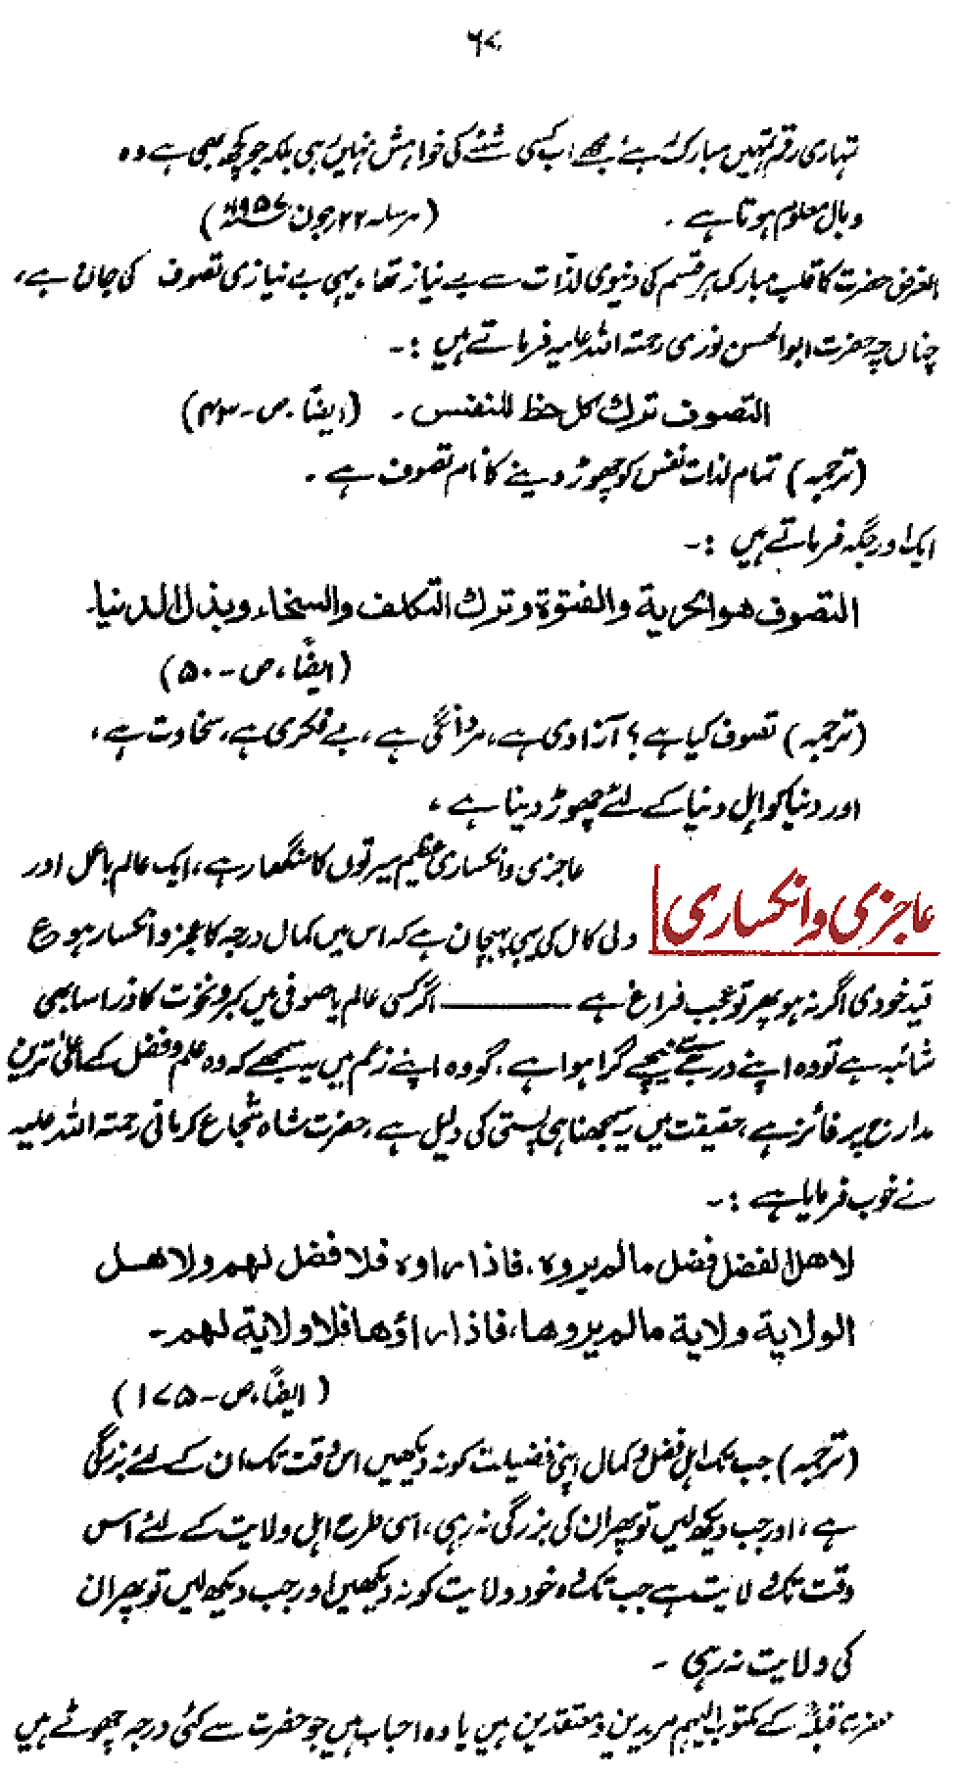 ۶۷
تمہاری رقم تمہیں مبارک ہے مجھے اب کسی شئے کی خواہش نہیں رہی بلکہ جو کچھ بھی ہے وہ
وبال معلوم ہوتا ہے ۔ (مرسلہ ۲۲ رجون ۱۹۵۷ء)
الغرض حضرت کا قلب مبارک ہر قسم کی دنیوی لذات سے بے نیاز تھا، یہی بے نیازی تصوف کی جان ہے،
چناں چہ حضرت ابوالحسن نوری رحمۃ اللہ علیہ فرماتے ہیں :۔
التصوف ترک کل حظ للنفس ۔ (ایضاً، ص۔۴۳)
(ترجمہ) تمام لذات نفس کو چھوڑ دینے کا نام تصوف ہے ۔
ایک اور جگہ فرماتے ہیں :۔
التصوف ھو الحریۃ والفتوۃ وترک التکلف والسخاء وبذل الدنیا۔
(ایضاً، ص۔۵۰)
(ترجمہ) تصوف کیا ہے؟ آزادی ہے، مردانگی ہے، بے فکری ہے، سخاوت ہے،
اور دنیا کو اہل دنیا کے لئے چھوڑ دینا ہے،
عاجزی وانکساری
عاجزی وانکساری عظیم سیرتوں کا سنگھار ہے، ایک عالم باعمل اور
ولی کامل کی یہی پہچان ہے کہ اس میں کمال درجہ کا عجز وانکسار ہو ع
قید خودی اگر نہ ہو پھر تو عجب فراغ ہے ــــــــ اگر کسی عالم یا صوفی میں کبر ونخوت کا ذرا سا بھی
شائبہ ہے تو وہ اپنے درجے سے نیچے گرا ہوا ہے، گو وہ اپنے زعم میں یہ سمجھے کہ وہ علم وفضل کے اعلیٰ ترین
مدارج پر فائز ہے، حقیقت میں یہ سمجھنا ہی پستی کی دلیل ہے، حضرت شاہ شجاع کرمانی رحمۃ اللہ علیہ
نے خوب فرمایا ہے :۔
لاھل الفضل فضل مالم یروہ، فاذا راوہ فلا فضل لھم ولاھل
الولایۃ ولایۃ مالم یروھا، فاذا راؤھا فلا ولایۃ لھم۔
(ایضاً، ص۔۱۷۵)
(ترجمہ) جب تک اہل فضل وکمال اپنی فضیلت کو نہ دیکھیں اس وقت تک ان کے لئے بزرگی
ہے، اور جب دیکھ لیں تو پھر ان کی بزرگی نہ رہی، اسی طرح اہل ولایت کے لئے اس
وقت تک ولایت ہے جب تک وہ خود ولایت کو نہ دیکھیں اور جب دیکھ لیں تو پھر ان
کی ولایت نہ رہی ۔
حضرت قبلہؒ کے مکتوب الیہم مریدین ومعتقدین ہیں یا وہ احباب ہیں جو حضرت سے کئی درجہ چھوٹے ہیں